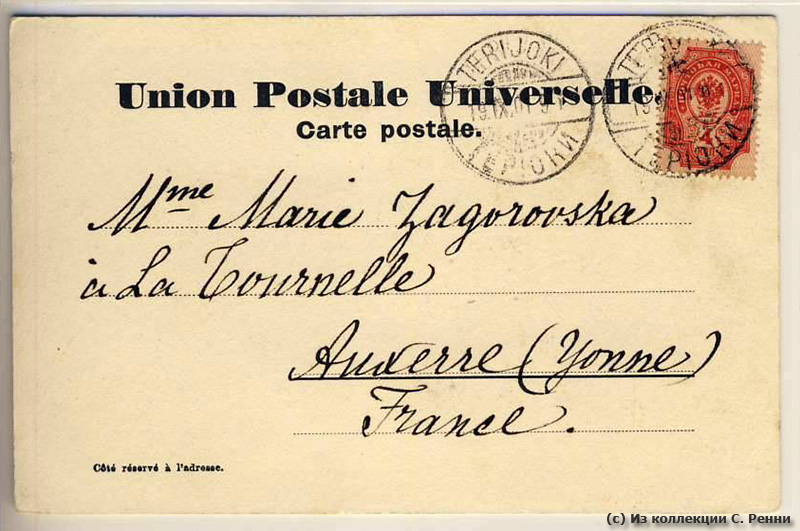 Union Postale Universelle.
Carte postale.
TERIJOKI
19.IX.01
ТЕРІОКИ
ТЕРІОКИ
Mme Marie Zagorovska
à La Tournelle
Auxerre (Yonne)
France.
Côté réservé à l'adresse.
(c) Из коллекции С. Ренни